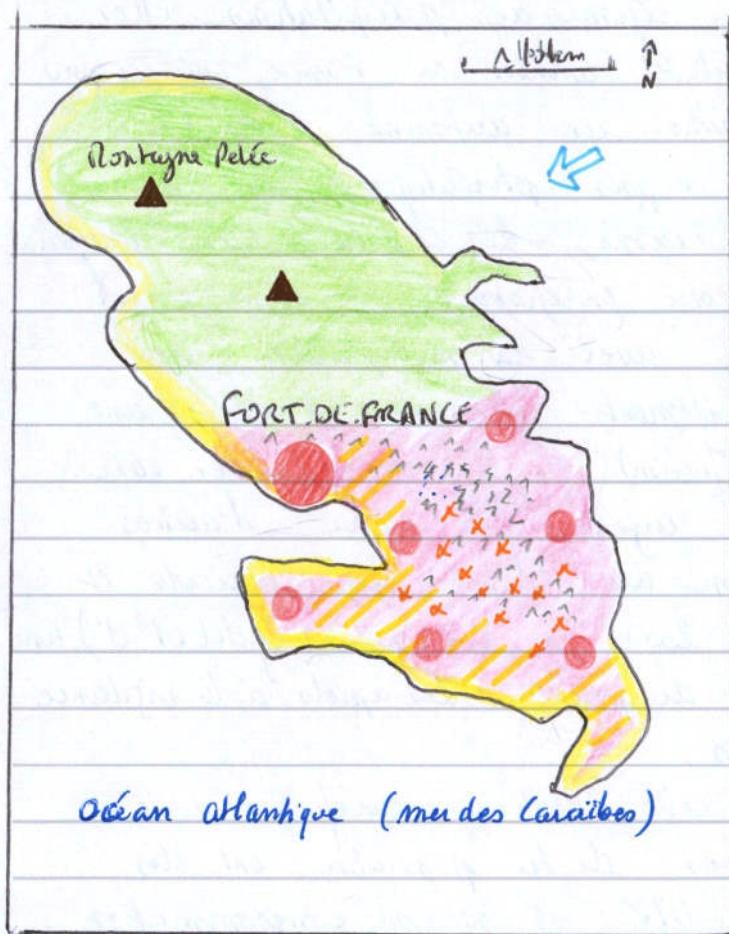 N
Montagne Pelée
FORT.DE.FRANCE
océan atlantique (mer des Caraïbes)